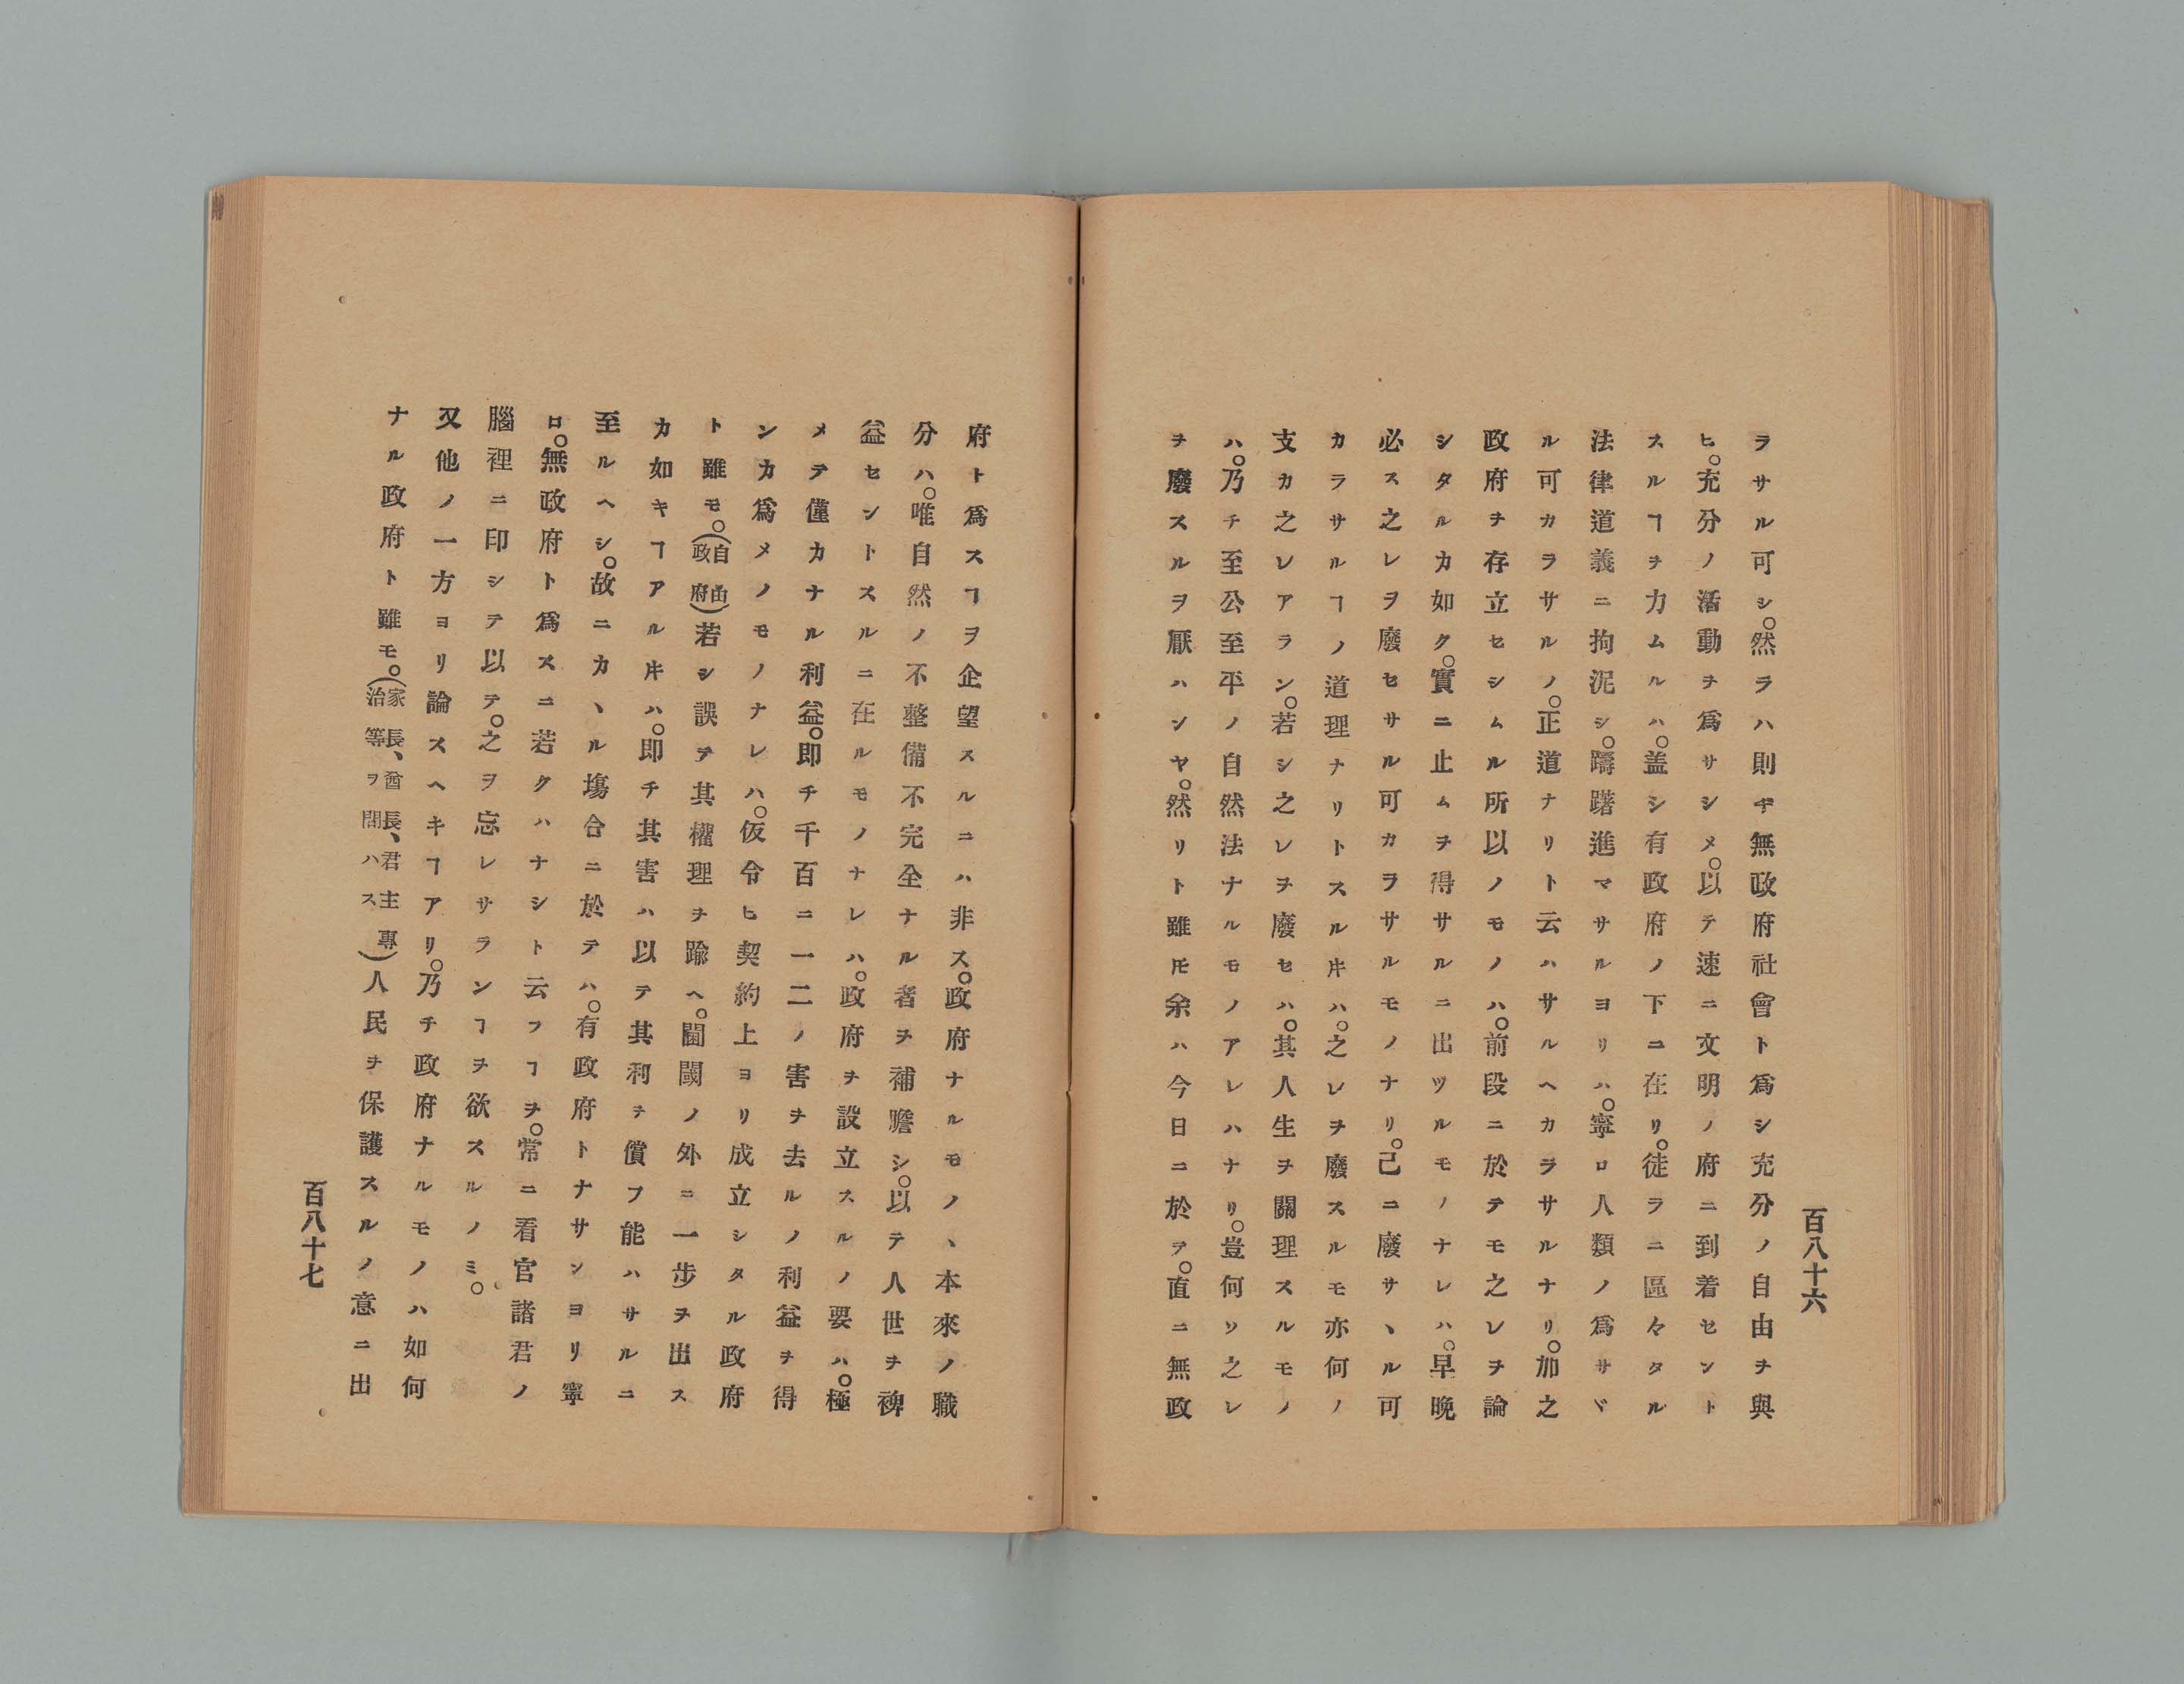 百八十六
ラサル可シ。然ラハ則チ無政府社會ト爲シ充分ノ自由ヲ與
ヒ。充分ノ活動ヲ爲サシメ。以テ速ニ文明ノ府ニ到着セント
スルヿヲ力ムルハ。盖シ有政府ノ下ニ在リ。徒ラニ區々タル
法律道義ニ拘泥シ。躊躇進マサルヨリハ。寧ロ人類ノ爲サヾ
ル可カラサルノ。正道ナリト云ハサルヘカラサルナリ。加之
政府ヲ存立セシムル所以ノモノハ。前段ニ於テモ之レヲ論
シタルカ如ク。實ニ止ムヲ得サルニ出ツルモノナレハ。早晚
必ス之レヲ廢セサル可カラサルモノナリ。己ニ廢サヽル可
カラサルヿノ道理ナリトスル𪜈ハ。之レヲ廢スルモ亦何ノ
支カ之レアラン。若シ之レヲ廢セハ。其人生ヲ關理スルモノ
ハ。乃チ至公至平ノ自然法ナルモノアレハナリ。豈何ソ之レ
ヲ廢スルヲ厭ハンヤ。然リト雖𪜈余ハ今日ニ於テ。直ニ無政
府ト爲スヿヲ企望スルニハ非ス。政府ナルモノヽ本來ノ職
分ハ。唯自然ノ不整備不完全ナル者ヲ補贍シ。以テ人世ヲ裨
益セントスルニ在ルモノナレハ。政府ヲ設立スルノ要ハ。極
メテ僅カナル利益。即チ千百ニ一二ノ害ヲ去ルノ利益ヲ得
ンカ爲メノモノナレハ。仮令ヒ契約上ヨリ成立シタル政府
ト雖モ。(自由政府)若シ誤テ其權理ヲ踰ヘ。閫閾ノ外ニ一步ヲ出ス
カ如キヿアルキハ。即チ其害ハ以テ其利ヲ償フ能ハサルニ
至ルヘシ。故ニカヽル塲合ニ於テハ。有政府トナサンヨリ寧
ロ。無政府ト爲スニ若クハナシト云フヿヲ。常ニ看官諸君ノ
腦裡ニ印シテ以テ。之ヲ忘レサランヿヲ欲スルノミ。
又他ノ一方ヨリ論スヘキヿアリ。乃チ政府ナルモノハ如何
ナル政府ト雖モ。(家長、酋長、君主專治等ヲ問ハス)人民ヲ保護スルノ意ニ出
百八十七